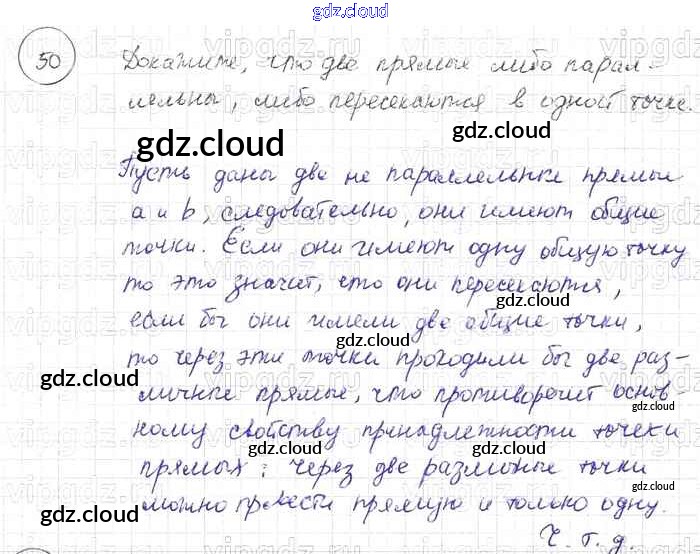 gdz.cloud
50 Докажите, что две прямые либо парал-
лельны, либо пересекаются в одной точке.
gdz.cloud
gdz.cloud
Пусть даны две не параллельные прямые
a и b, следовательно, они имеют общие
gdz.cloud
точки. Если они имеют одну общую точку
то это значит, что они пересекаются,
gdz.cloud
если бы они имели две общие точки,
gdz.cloud
то через эти точки проходили бы две раз-
gdz.cloud
личные прямые, что противоречит основ-
gdz.cloud
ному свойству принадлежности точек и
gdz.cloud
прямых: через две различные точки
можно провести прямую и только одну.
gdz.cloud
gdz.cloud
Ч. т. д.
gdz.cloud